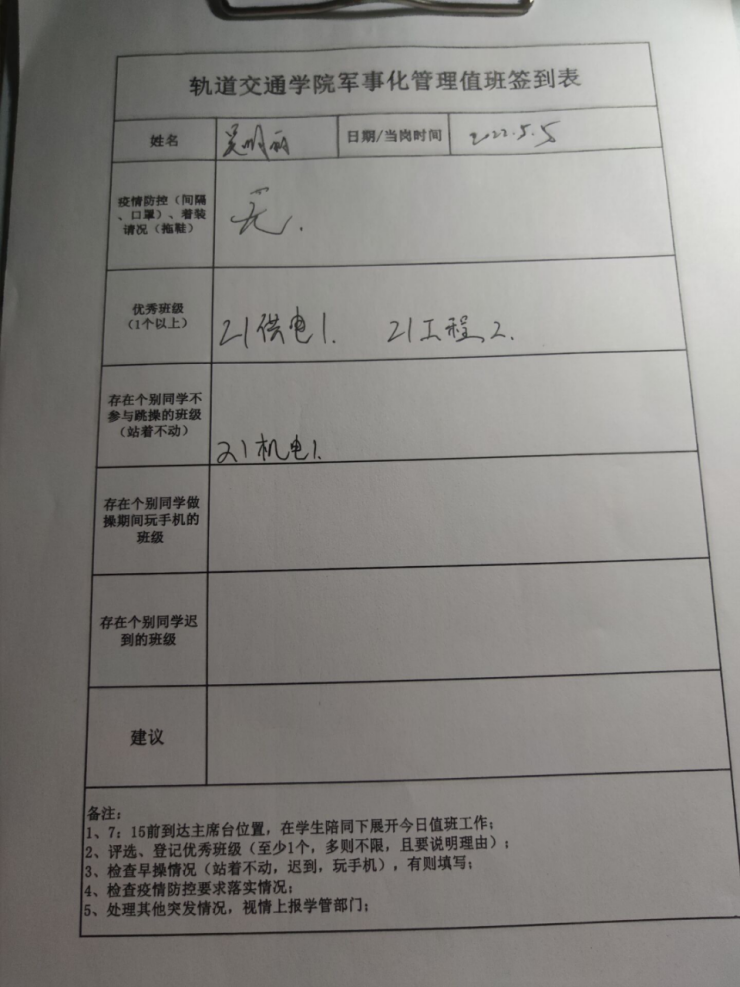 轨道交通学院军事化管理值班签到表
姓名 吴明丽 日期/当岗时间 2022.5.5
疫情防控（间隔
、口罩）、着装
请况（拖鞋）
无.
优秀班级
（1个以上）
21供电1. 21工程2.
存在个别同学不
参与跳操的班级
（站着不动）
21机电1.
存在个别同学做
操期间玩手机的
班级
存在个别同学迟
到的班级
建议
备注：
1、7：15前到达主席台位置，在学生陪同下展开今日值班工作；
2、评选、登记优秀班级（至少1个，多则不限，且要说明理由）；
3、检查早操情况（站着不动，迟到，玩手机），有则填写；
4、检查疫情防控要求落实情况；
5、处理其他突发情况，视情上报学管部门；